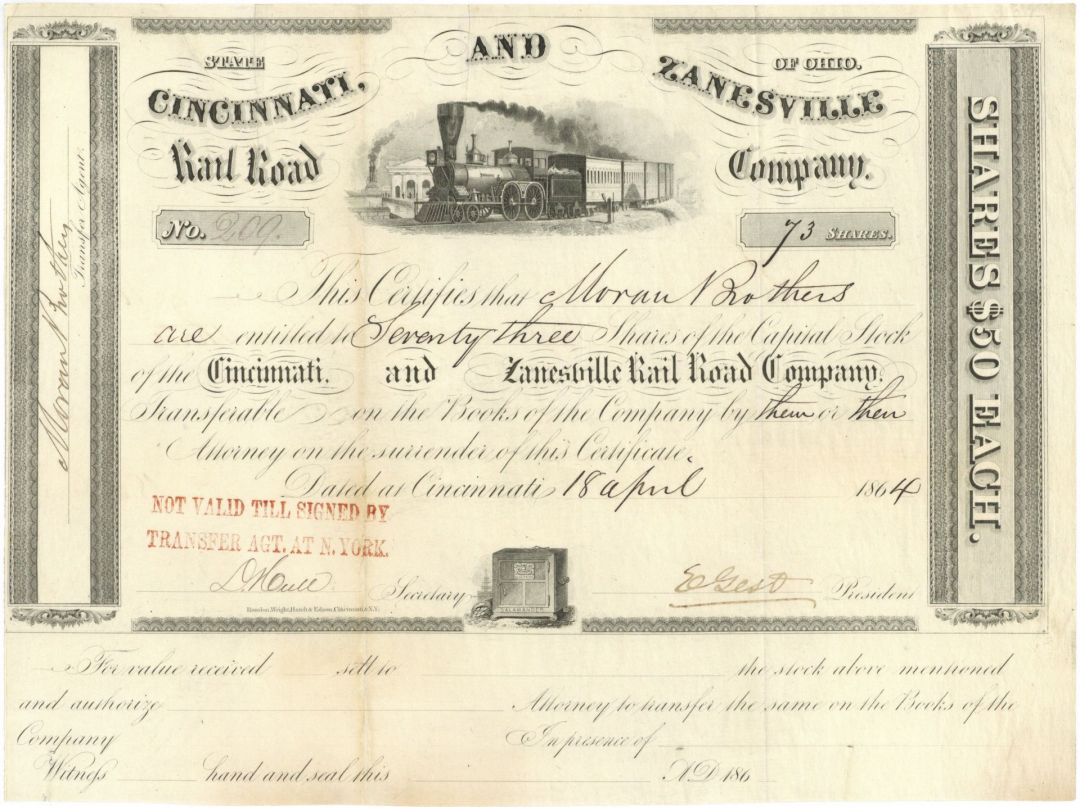 STATE AND OF OHIO.
CINCINNATI, ZANESVILLE
Rail Road Company.
No. 209. 73 SHARES.
This Certifies that Moran Brothers
are entitled to Seventy three Shares of the Capital Stock
of the Cincinnati. and Zanesville Rail Road Company.
Transferable on the Books of the Company by them or their
Attorney on the surrender of this Certificate.
Dated at Cincinnati 18 april 1864
NOT VALID TILL SIGNED BY
TRANSFER AGT. AT N. YORK.
Secretary E Gest President
Rawdon, Wright, Hatch & Edson, Cincinnati & N.Y.
Moran Brothers
Transfer Agent.
SHARES $50 EACH.
For value received sell to the stock above mentioned
and authorize Attorney to transfer the same on the Books of the
Company In presence of
Witness hand and seal this AD 186